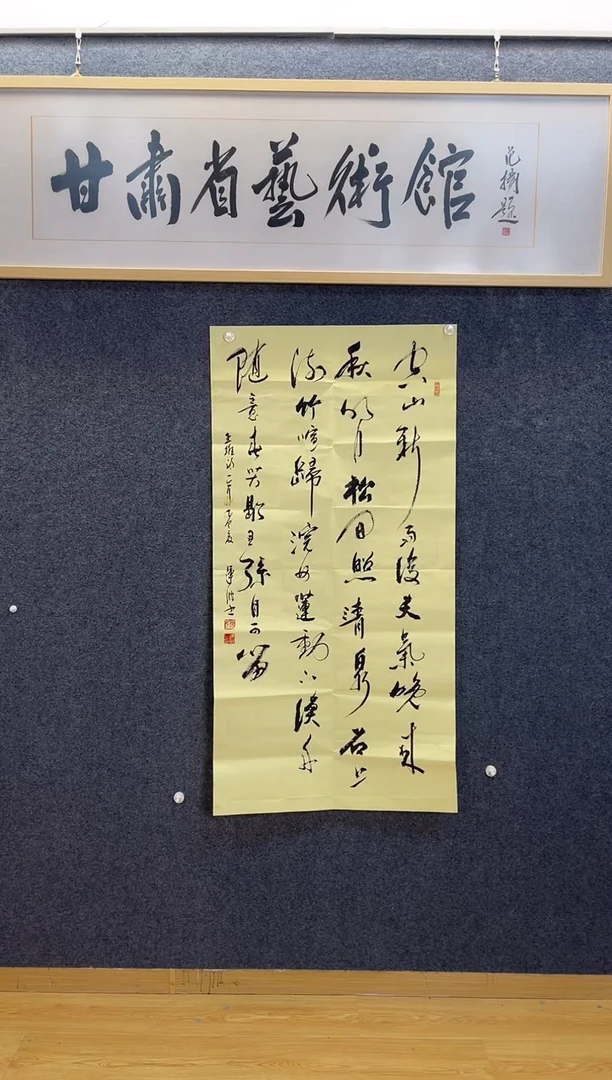 甘肅省藝術館
空山新雨後天氣晚來
秋明月松間照清泉石上
流竹喧歸浣女蓮動下漁舟
随意春芳歇王孫自可留
王維詩一首